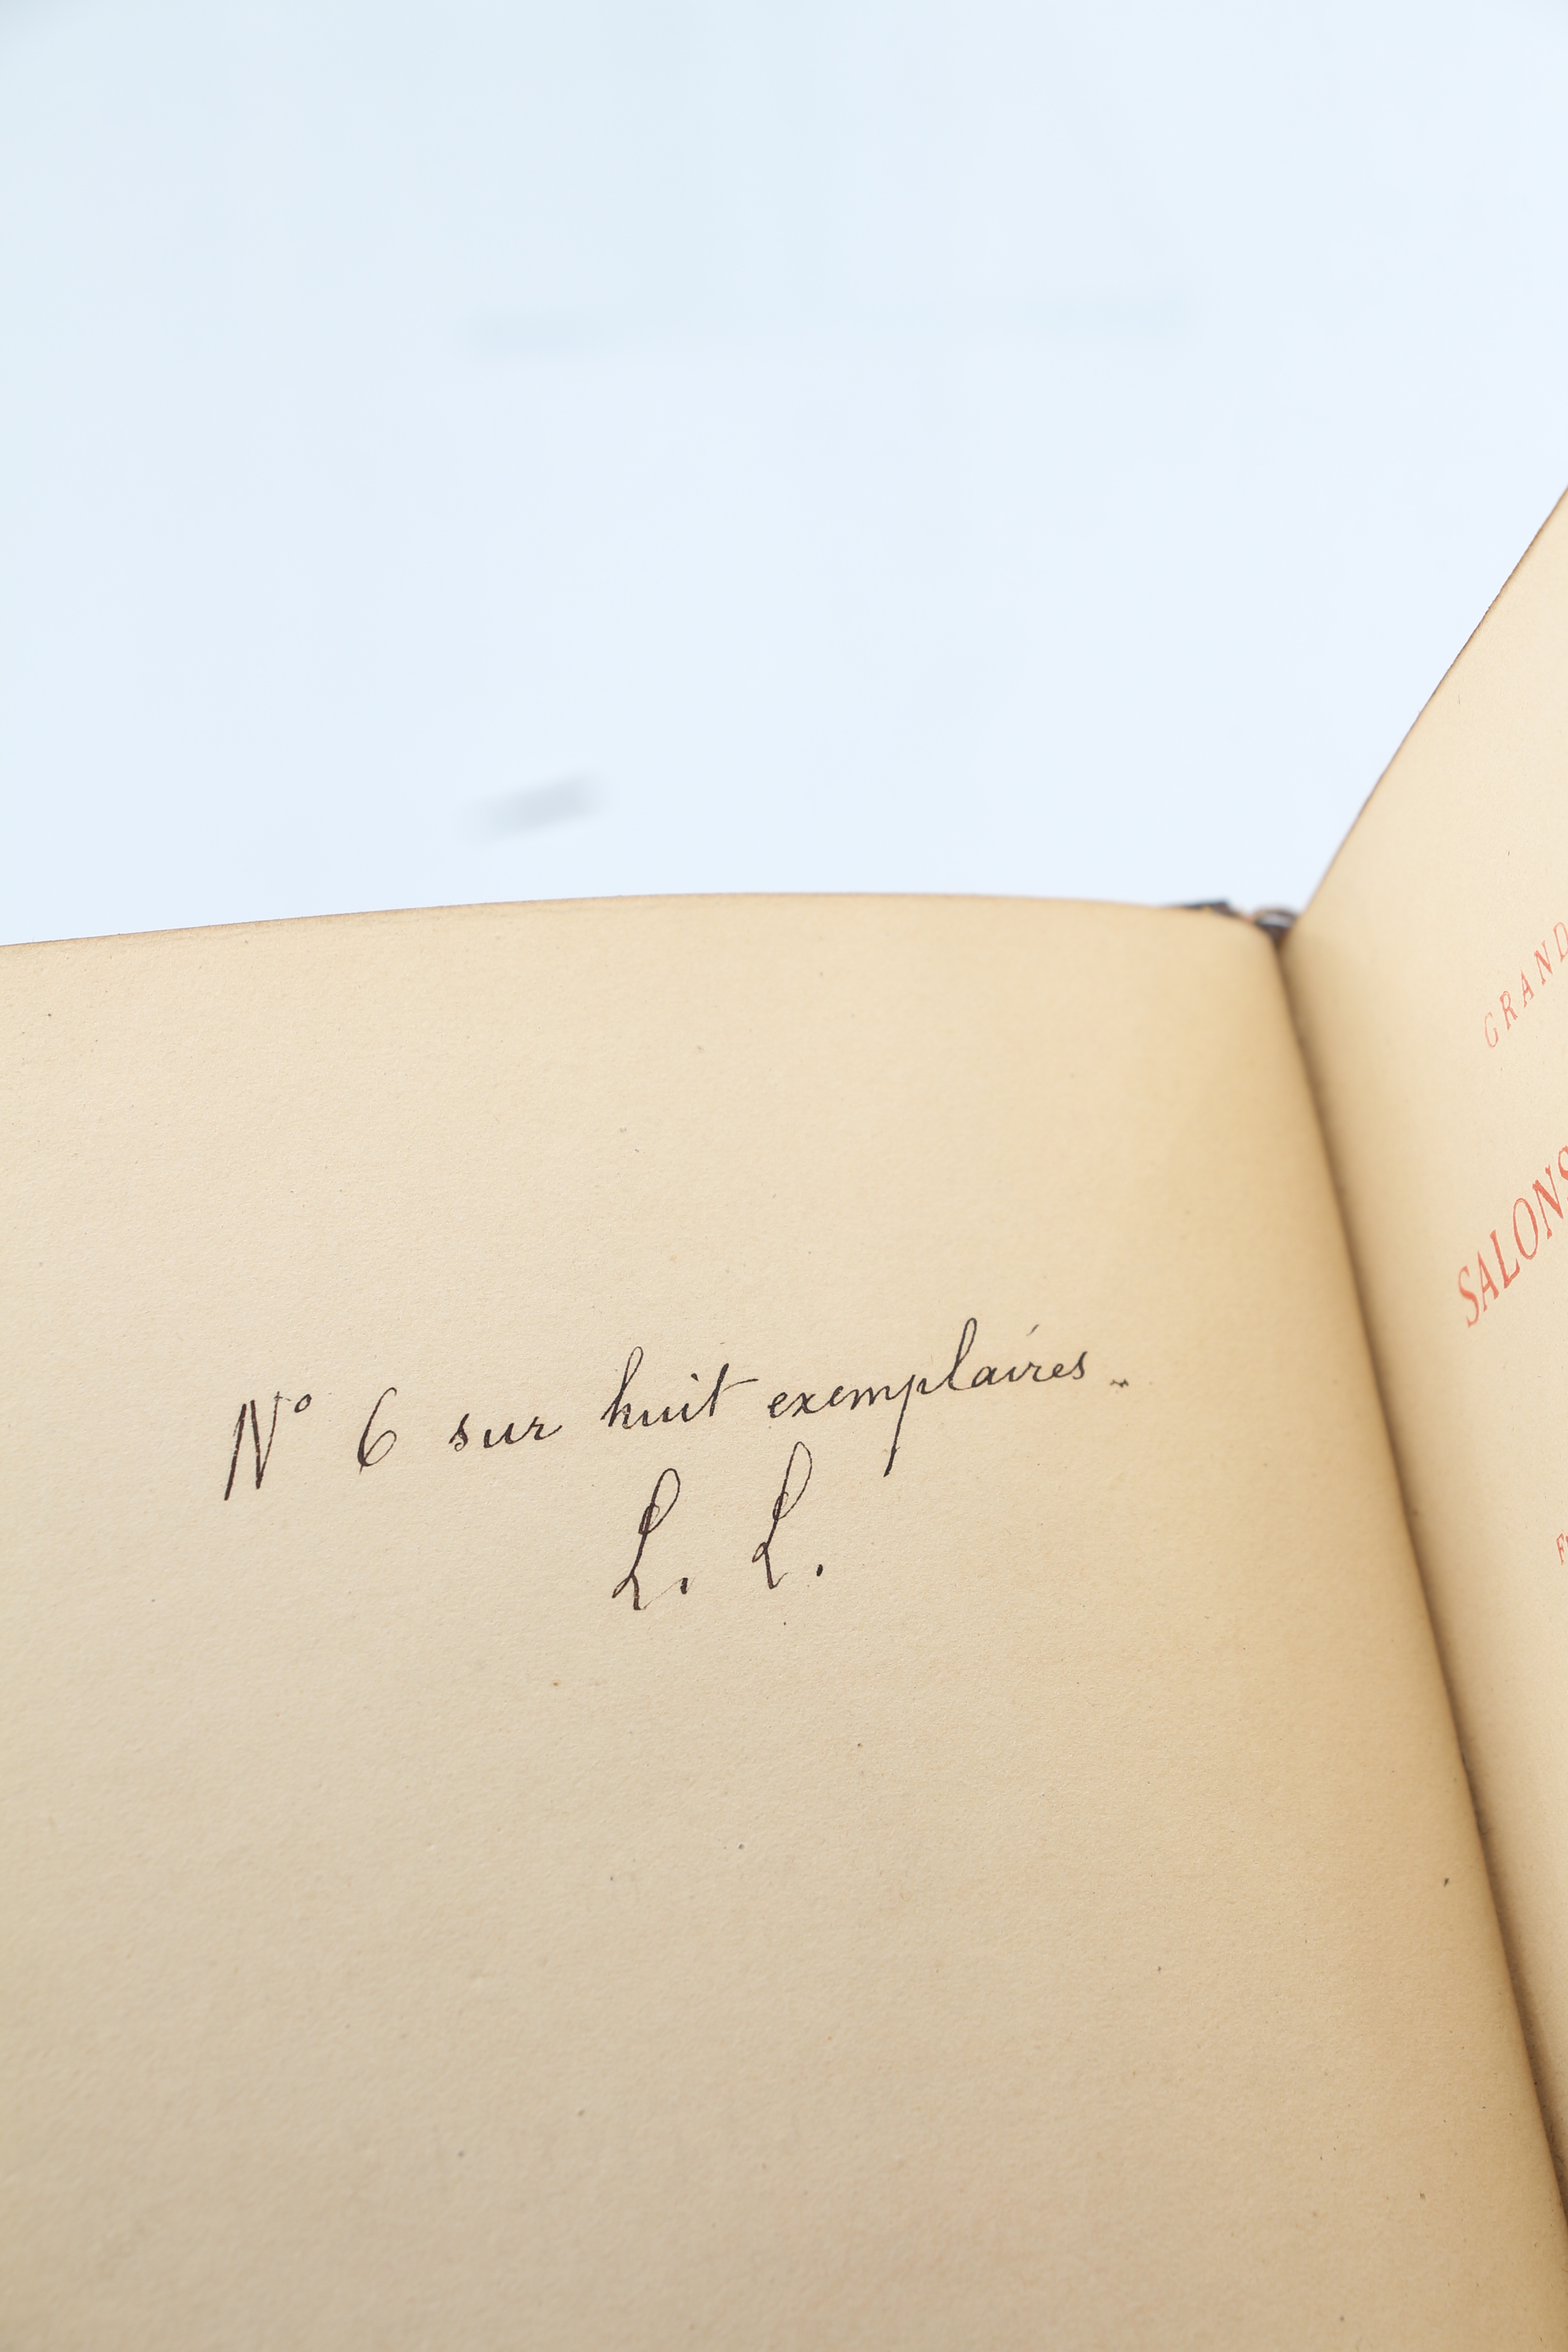 N° 6 sur huit exemplaires.
L. L.
GRAND
SALONS